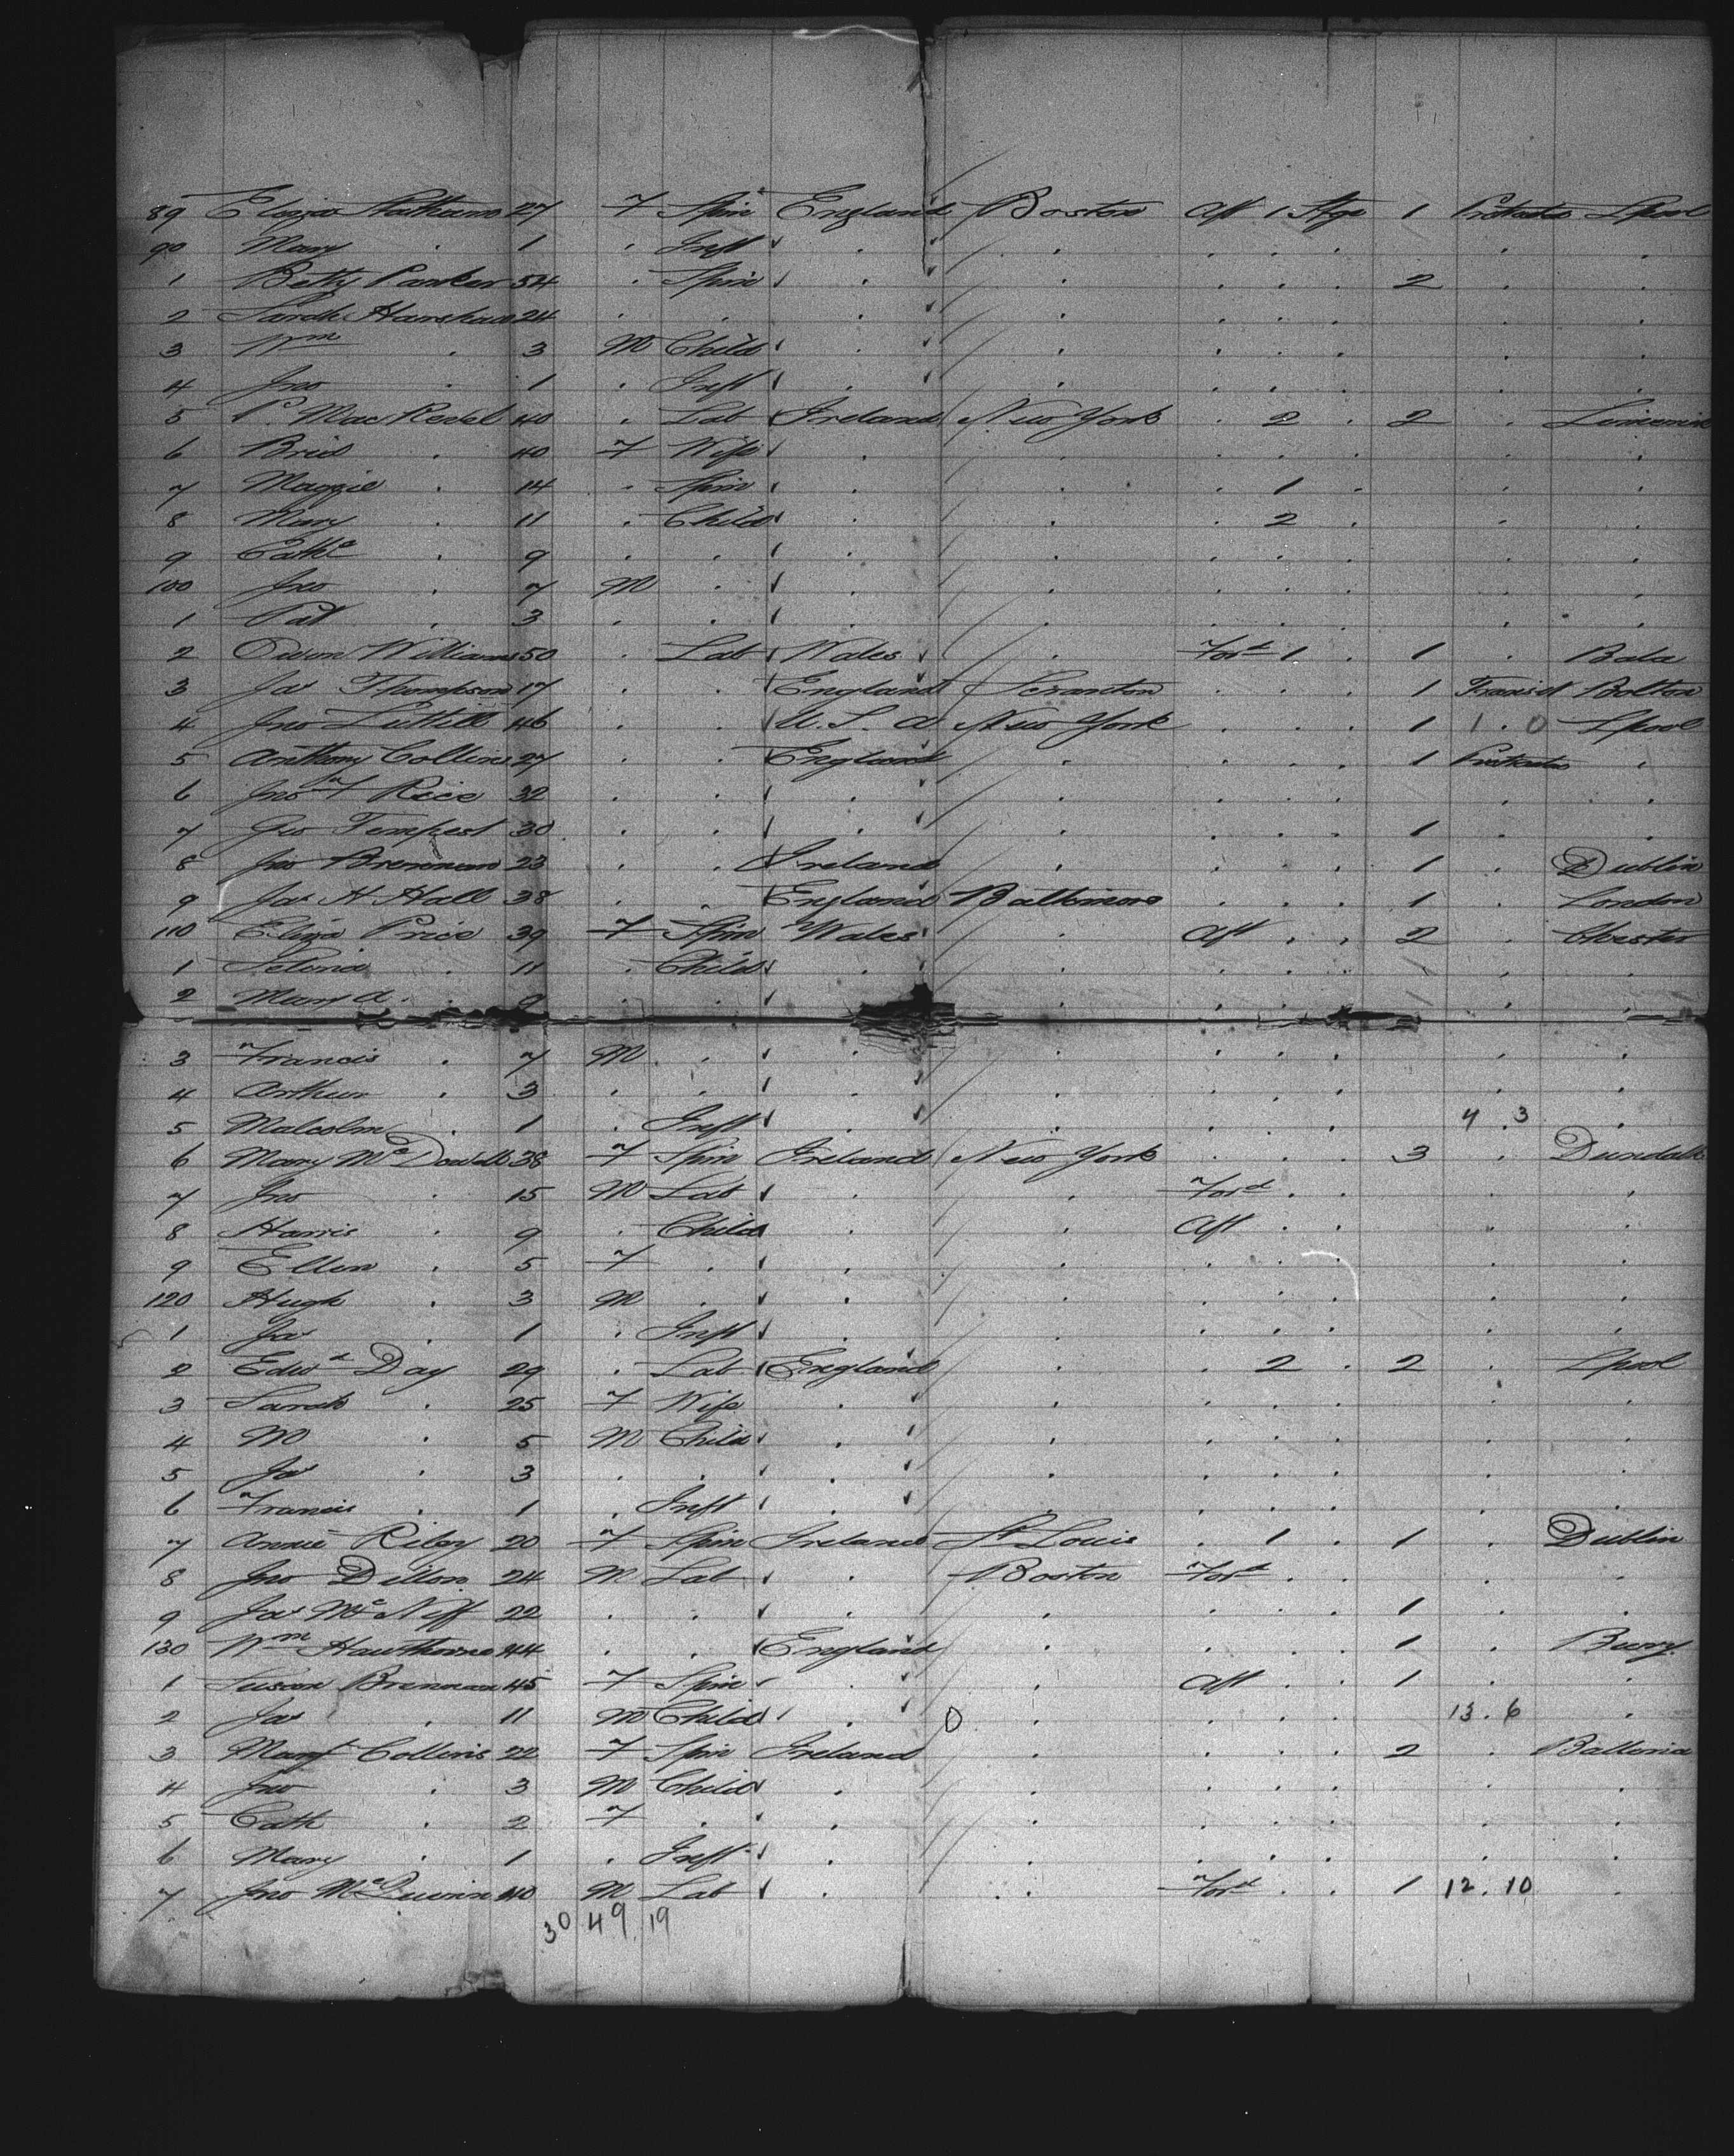 89 Eliza Statham 27 F Spin England Boston Aft 1 Stge 1 Protractd Lpool
90 Mary . 1 . Inft . . . . . . .
1 Betty Parker 54 . Spin . . . . . 2 . .
2 Sarah Hanshaw 24 . . . . . . . . .
3 Wm . 3 M Child . . . . . . .
4 Jno . 1 . Inft . . . . . . .
5 P. Mac Redel 40 . Lab Ireland New York . 2 . 2 . Limerick
6 Brid . 40 F Wife . . . . . . .
7 Maggie . 14 . Spin . . . 1 . . .
8 Mary . 11 . Child . . . 2 . . .
9 Cathe . 9 . . . . . . . . .
100 Jno . 7 M . . . . . . . .
1 Pat . 3 . . . . . . . . .
2 Owen Williams 50 . Lab Wales . Ford 1 . 1 . Bala
3 Jas Thompson 17 . . England Scranton . . . 1 Transit Bolton
4 Jno Luttill 46 . . U.S.A New York . . . 1 1 . 0 Lpool
5 Anthony Collins 27 . . England . . . . 1 Protractd .
6 Jno F Rice 32 . . . . . . . . .
7 Geo Tempest 30 . . . . . . . 1 . .
8 Jno Brennan 23 . . Ireland . . . . 1 . Dublin
9 Jas H Hall 38 . . England Baltimore . . . 1 . London
110 Eliza Price 39 F Spin Wales . Aft . . 2 . Chester
1 Selina . 11 . Child . . . . . . .
2 Mary A . 9 . . . . . . . . .
3 Francis . 7 M . . . . . . . .
4 Arthur . 3 . . . . . . . . .
5 Malcolm . 1 . Inft . . . . . 4 . 3 .
6 Mary Mc Dowell 38 F Spin Ireland New York . . . 3 . Dundalk
7 Jno . 15 M Lab . . Ford . . . .
8 Harris . 9 . Child . . Aft . . . .
9 Ellen . 5 F . . . . . . . .
120 Hugh . 3 M . . . . . . . .
1 Jas . 1 . Inft . . . . . . .
2 Edwd Day 29 . Lab England . . 2 . 2 . Lpool
3 Sarah . 25 F Wife . . . . . . .
4 M . 5 M Child . . . . . . .
5 Jas . 3 . . . . . . . . .
6 Francis . 1 . Inft . . . . . . .
7 Annie Riley 20 F Spin Ireland St Louis . 1 . 1 . Dublin
8 Jno Dillon 24 M Lab . Boston Ford . . . .
9 Jas Mc Niff 22 . . . . . . . 1 . .
130 Wm Hawthorne 44 . . England . . . . 1 . Bury
1 Susan Brennan 45 F Spin . . Aft . . 1 . .
2 Jas . 11 M Child . 0 . . . . 13 . 6 .
3 Margt Collins 22 F Spin Ireland . . . . 2 . Ballina
4 Jno . 3 M Child . . . . . . .
5 Cath . 2 F . . . . . . . .
6 Mary . 1 . Inft . . . . . . .
7 Jno Mc 40 M Lab . . Ford . . 1 12 . 10 .
30 49 19